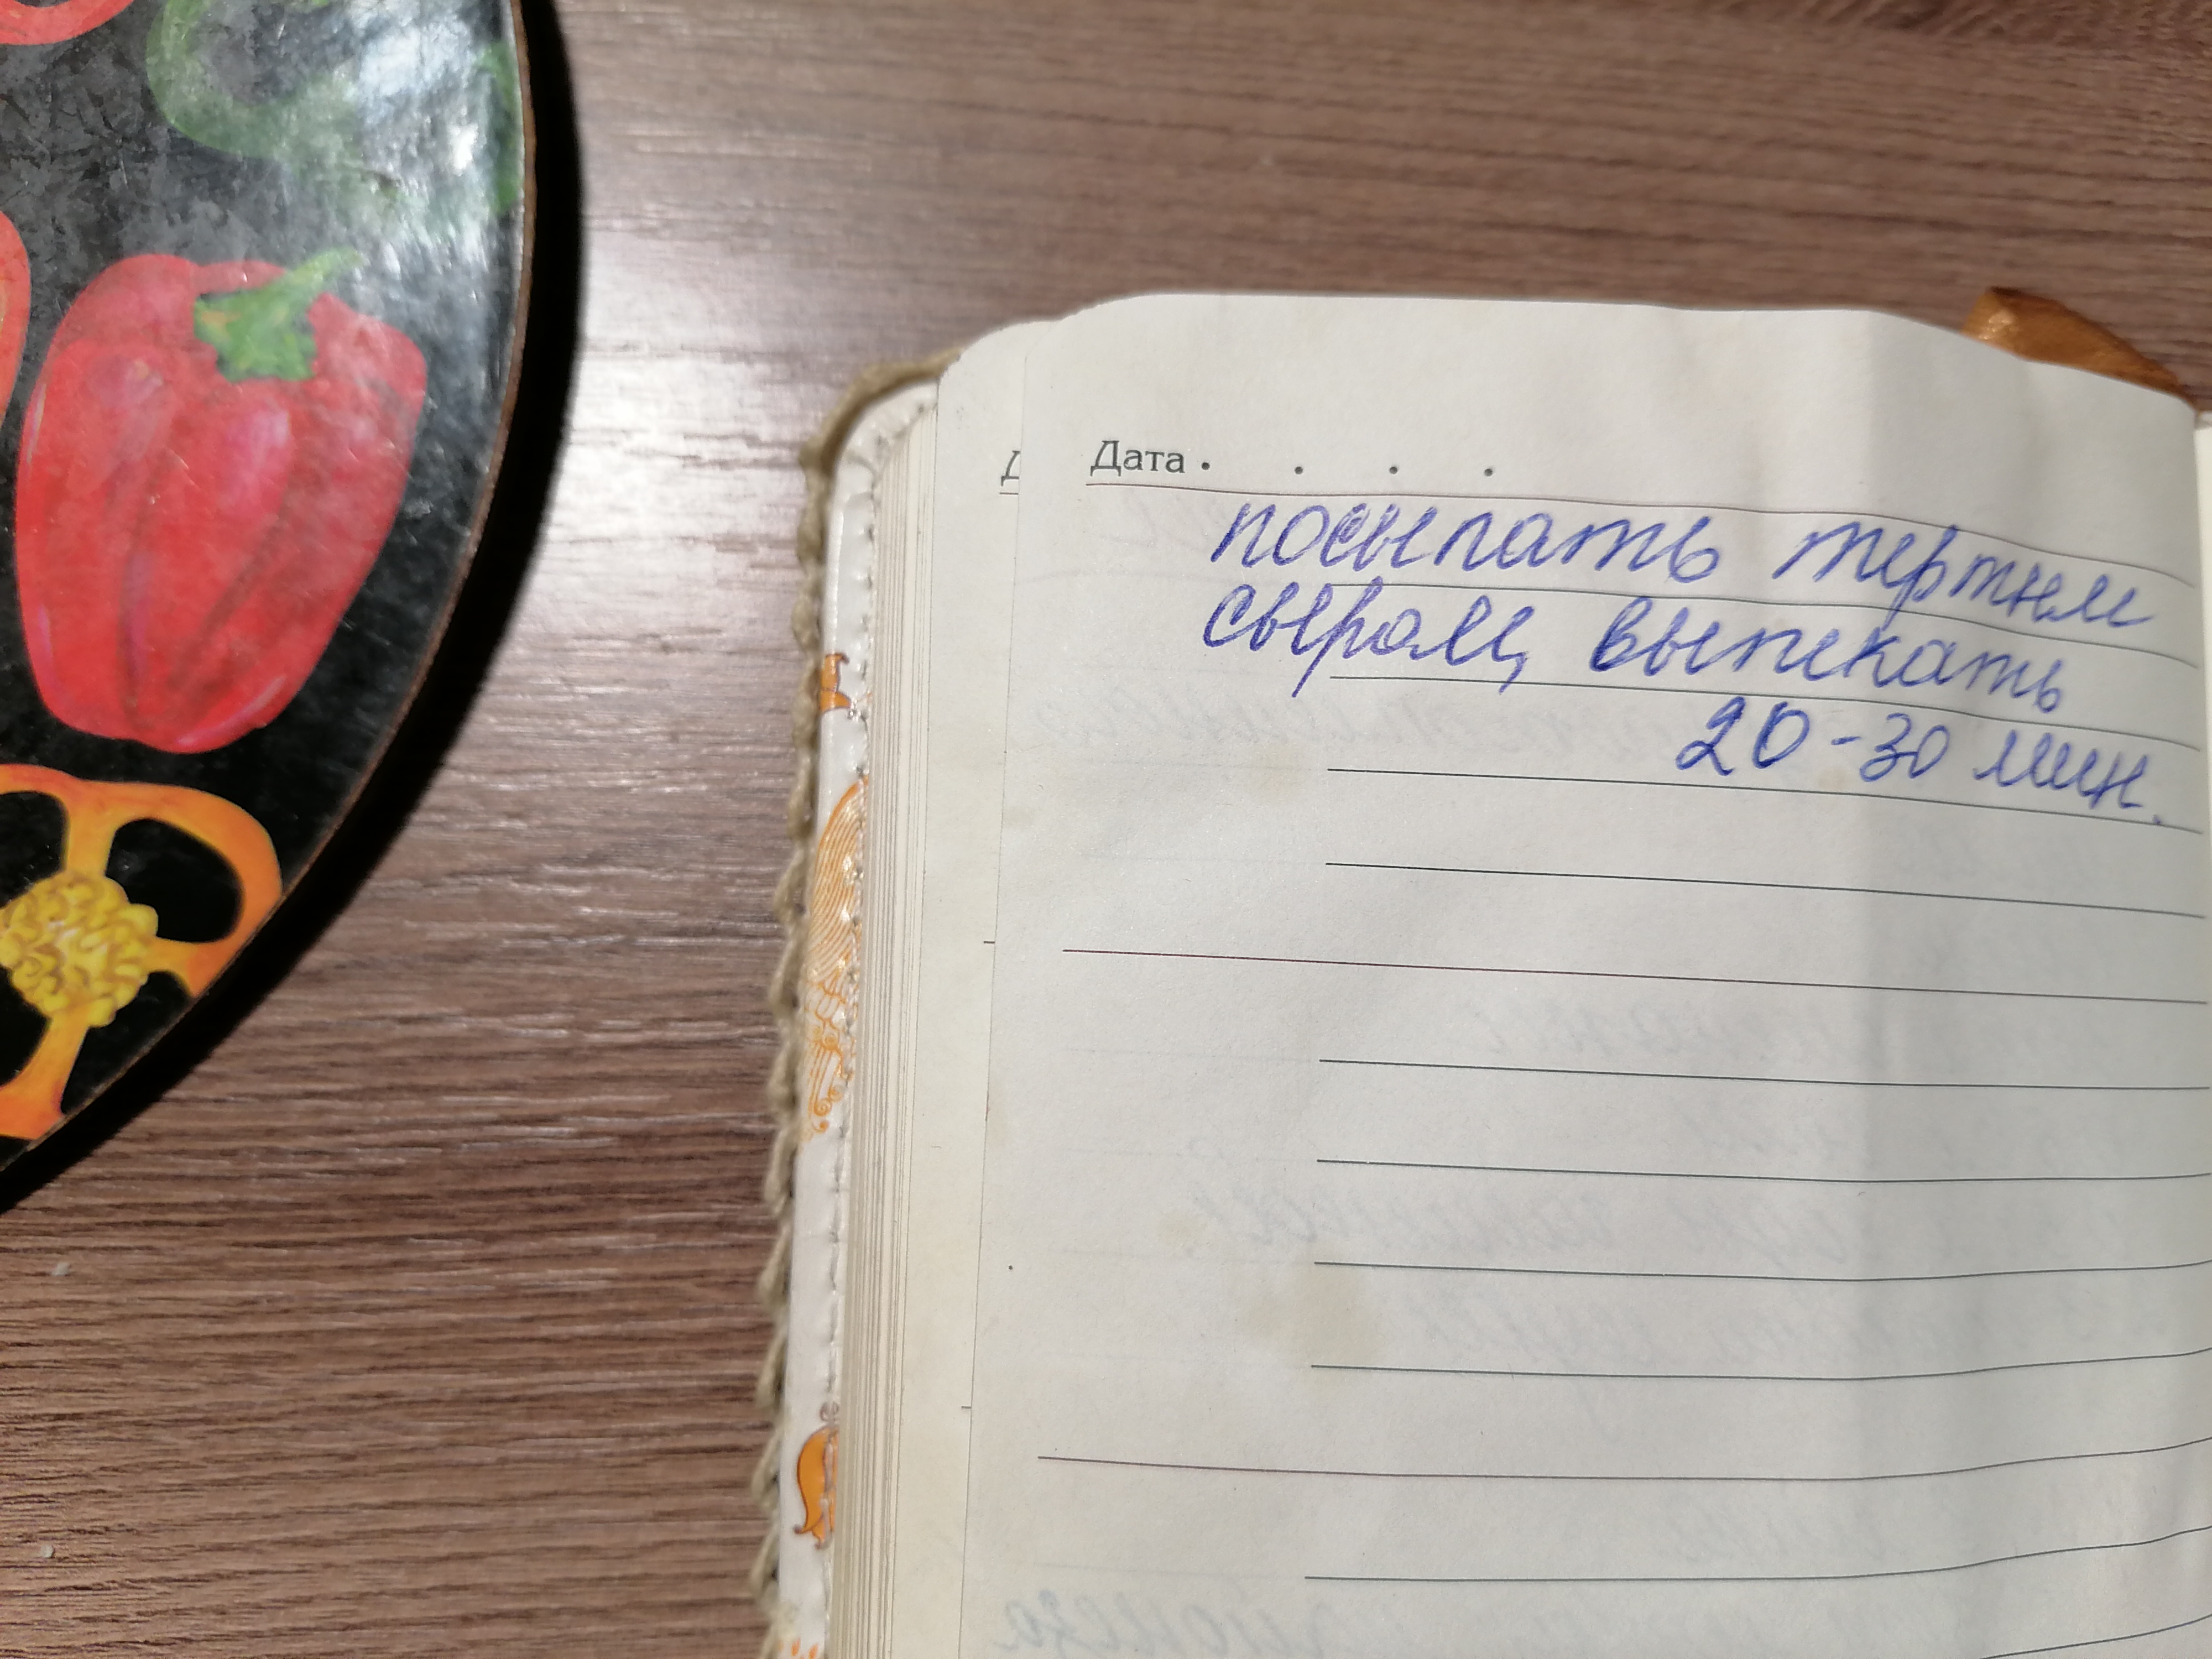 Дата . . . .
посыпать тертым
сыром, выпекать
20-30 мин.